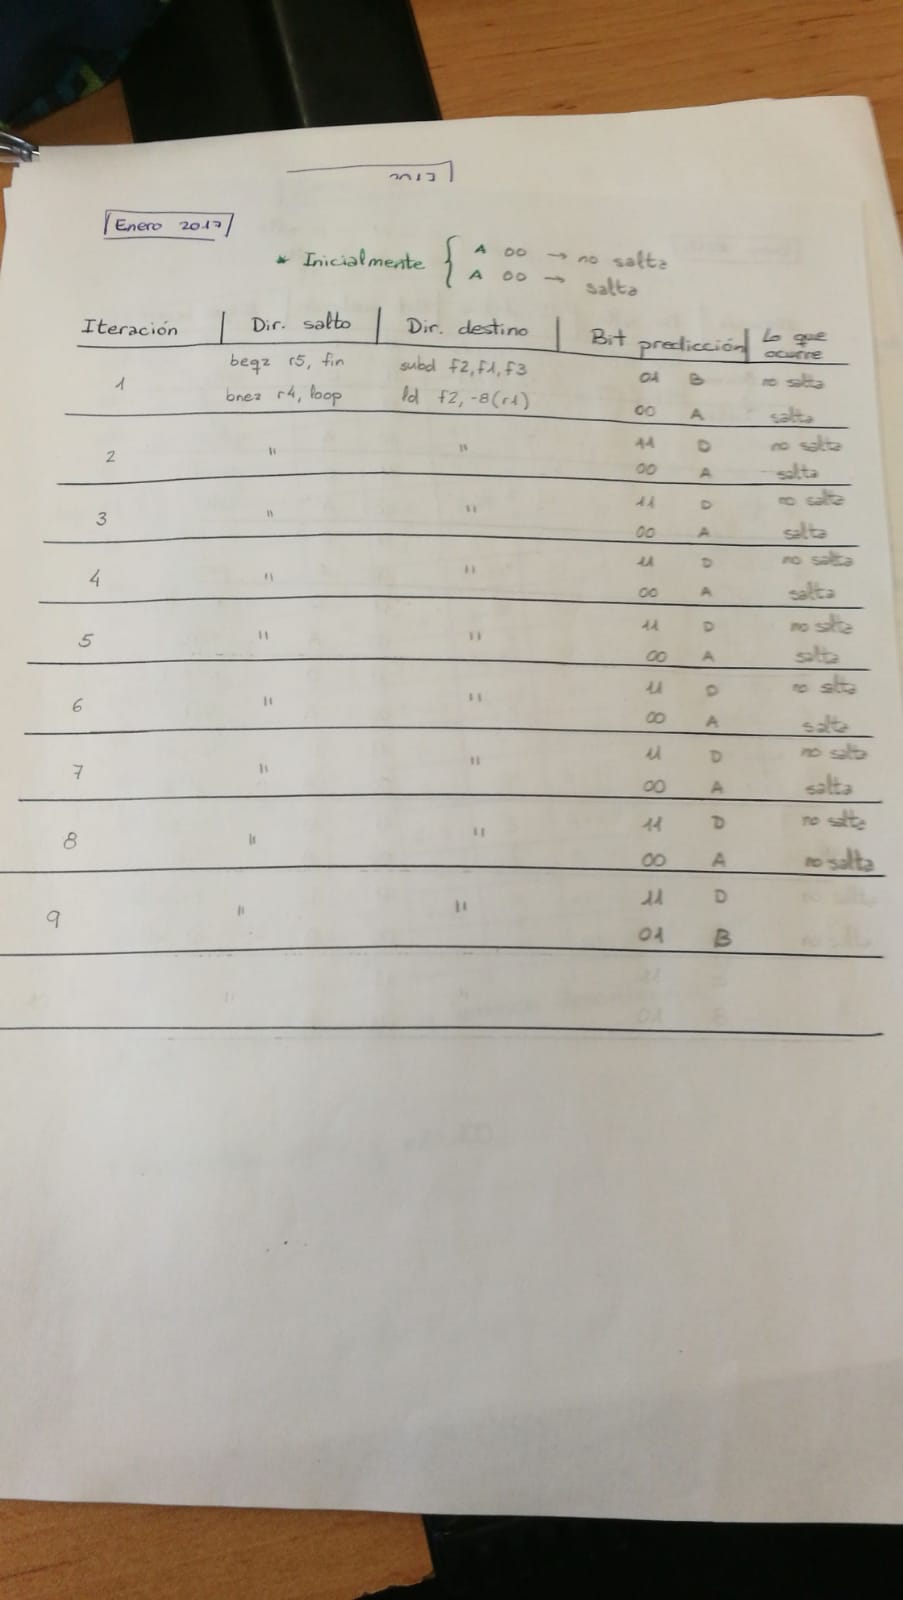 2017
Enero 2017
* Inicialmente { A 00 → no salta
A 00 → salta
Iteración | Dir. salto | Dir. destino | Bit predicción | Lo que ocurre
1 beqz r5, fin subd f2,f1,f3 01 B no salta
bnez r4, loop ld f2, -8(r1) 00 A salta
2 " " 11 D no salta
00 A salta
3 " " 11 D no salta
00 A salta
4 " " 11 D no salta
00 A salta
5 " " 11 D no salta
00 A salta
6 " " 11 D no salta
00 A salta
7 " " 11 D no salta
00 A salta
8 " " 11 D no salta
00 A no salta
9 " " 11 D no salta
01 B no salta
" " 11
01